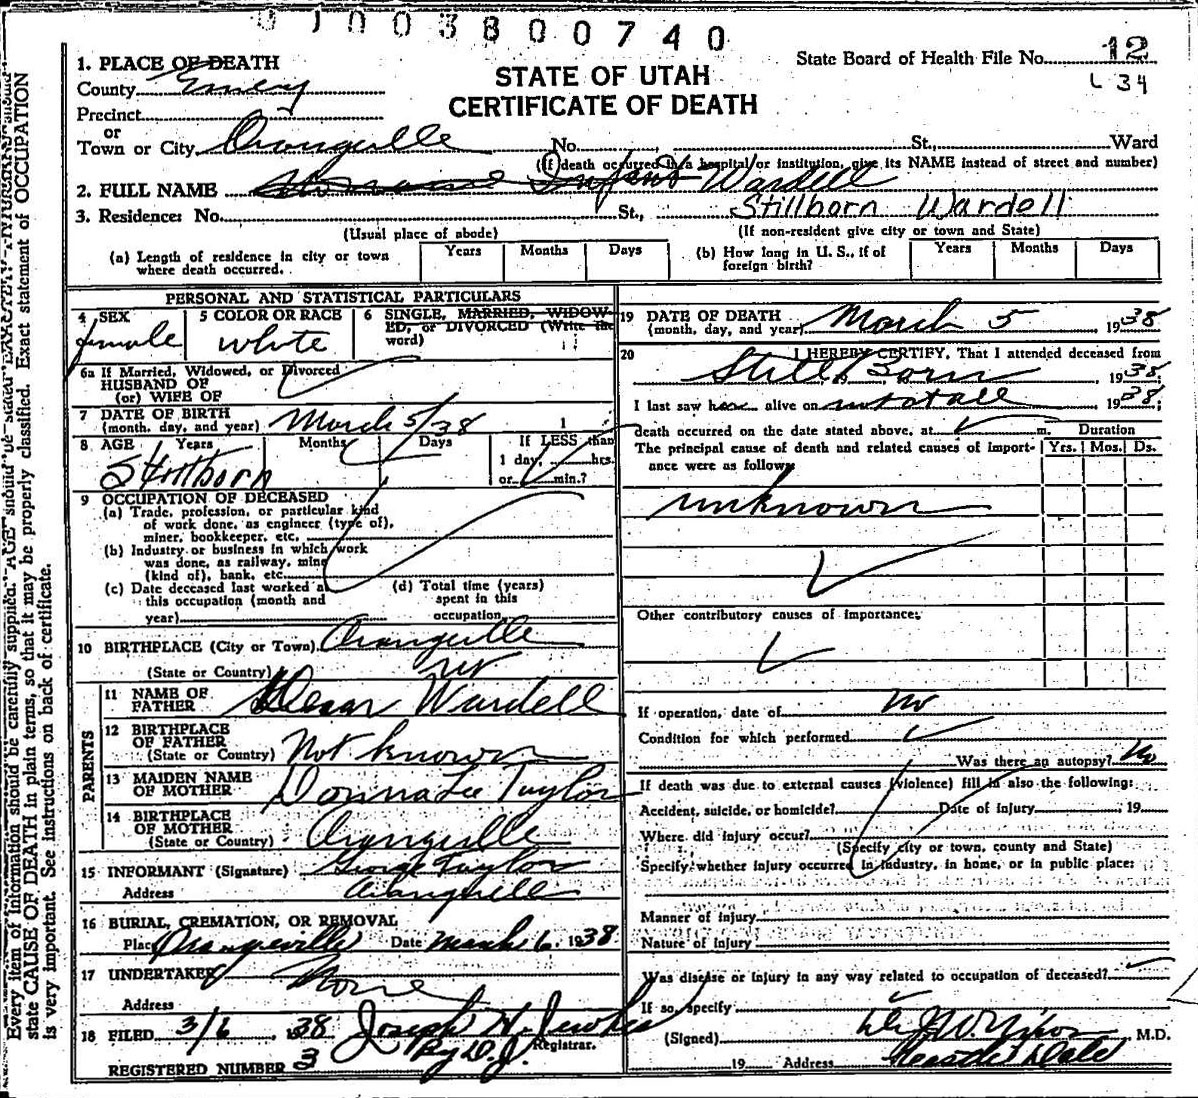 003800740
State Board of Health File No. 12
L 34
STATE OF UTAH
CERTIFICATE OF DEATH
1. PLACE OF DEATH
County Emery
Precinct
or
Town or City Orangeville No. St., Ward
(If death occurred in a hospital or institution, give its NAME instead of street and number)
2. FULL NAME Infant Wardell
3. Residence: No. St., Stillborn Wardell
(Usual place of abode) (If non-resident give city or town and State)
(a) Length of residence in city or town where death occurred. Years Months Days (b) How long in U. S., if of foreign birth? Years Months Days
PERSONAL AND STATISTICAL PARTICULARS
4 SEX 5 COLOR OR RACE 6 SINGLE, MARRIED, WIDOW-
ED, or DIVORCED (Write the
word)
female white
6a If Married, Widowed, or Divorced
HUSBAND OF
(or) WIFE OF
7 DATE OF BIRTH
(month, day, and year) March 5/38
8 AGE Years Months Days If LESS than
1 day, hrs.
or min.?
Stillborn
9 OCCUPATION OF DECEASED
(a) Trade, profession, or particular kind
of work done, as engineer (type of),
miner, bookkeeper, etc.
(b) Industry or business in which work
was done, as railway, mine
(kind of), bank, etc.
(c) Date deceased last worked at
this occupation (month and
year)
(d) Total time (years)
spent in this
occupation
10 BIRTHPLACE (City or Town) Orangeville
(State or Country) Ut
PARENTS
11 NAME OF
FATHER Wardell
12 BIRTHPLACE
OF FATHER
(State or Country) Not known
13 MAIDEN NAME
OF MOTHER Donna Lee Taylor
14 BIRTHPLACE
OF MOTHER
(State or Country) Orangeville
15 INFORMANT (Signature) George Taylor
Address Orangeville
16 BURIAL, CREMATION, OR REMOVAL
Place Orangeville Date March 6. 1938
17 UNDERTAKER None
Address
18 FILED 3/6, 1938 Joseph H. Jewkes
By D. J. Registrar.
REGISTERED NUMBER 3
19 DATE OF DEATH
(month, day, and year) March 5 1938
20 I HEREBY CERTIFY, That I attended deceased from
Still Born, 19, 1938
I last saw h alive on not at all 1938;
death occurred on the date stated above, at m. Duration
The principal cause of death and related causes of import-
ance were as follow Yrs. Mos. Ds.
unknown
Other contributory causes of importance:
If operation, date of no
Condition for which performed
Was there an autopsy? No
If death was due to external causes (violence) fill in also the following:
Accident, suicide, or homicide? Date of injury 19
Where did injury occur?
(Specify city or town, county and State)
Specify whether injury occurred in industry, in home, or in public place:
Manner of injury
Nature of injury
Was disease or injury in any way related to occupation of deceased?
If so, specify
(Signed) M.D.
19 Address
Every item of information should be carefully supplied. AGE should be stated EXACTLY. PHYSICIANS should
state CAUSE OF DEATH in plain terms, so that it may be properly classified. Exact statement of OCCUPATION
is very important. See instructions on back of certificate.